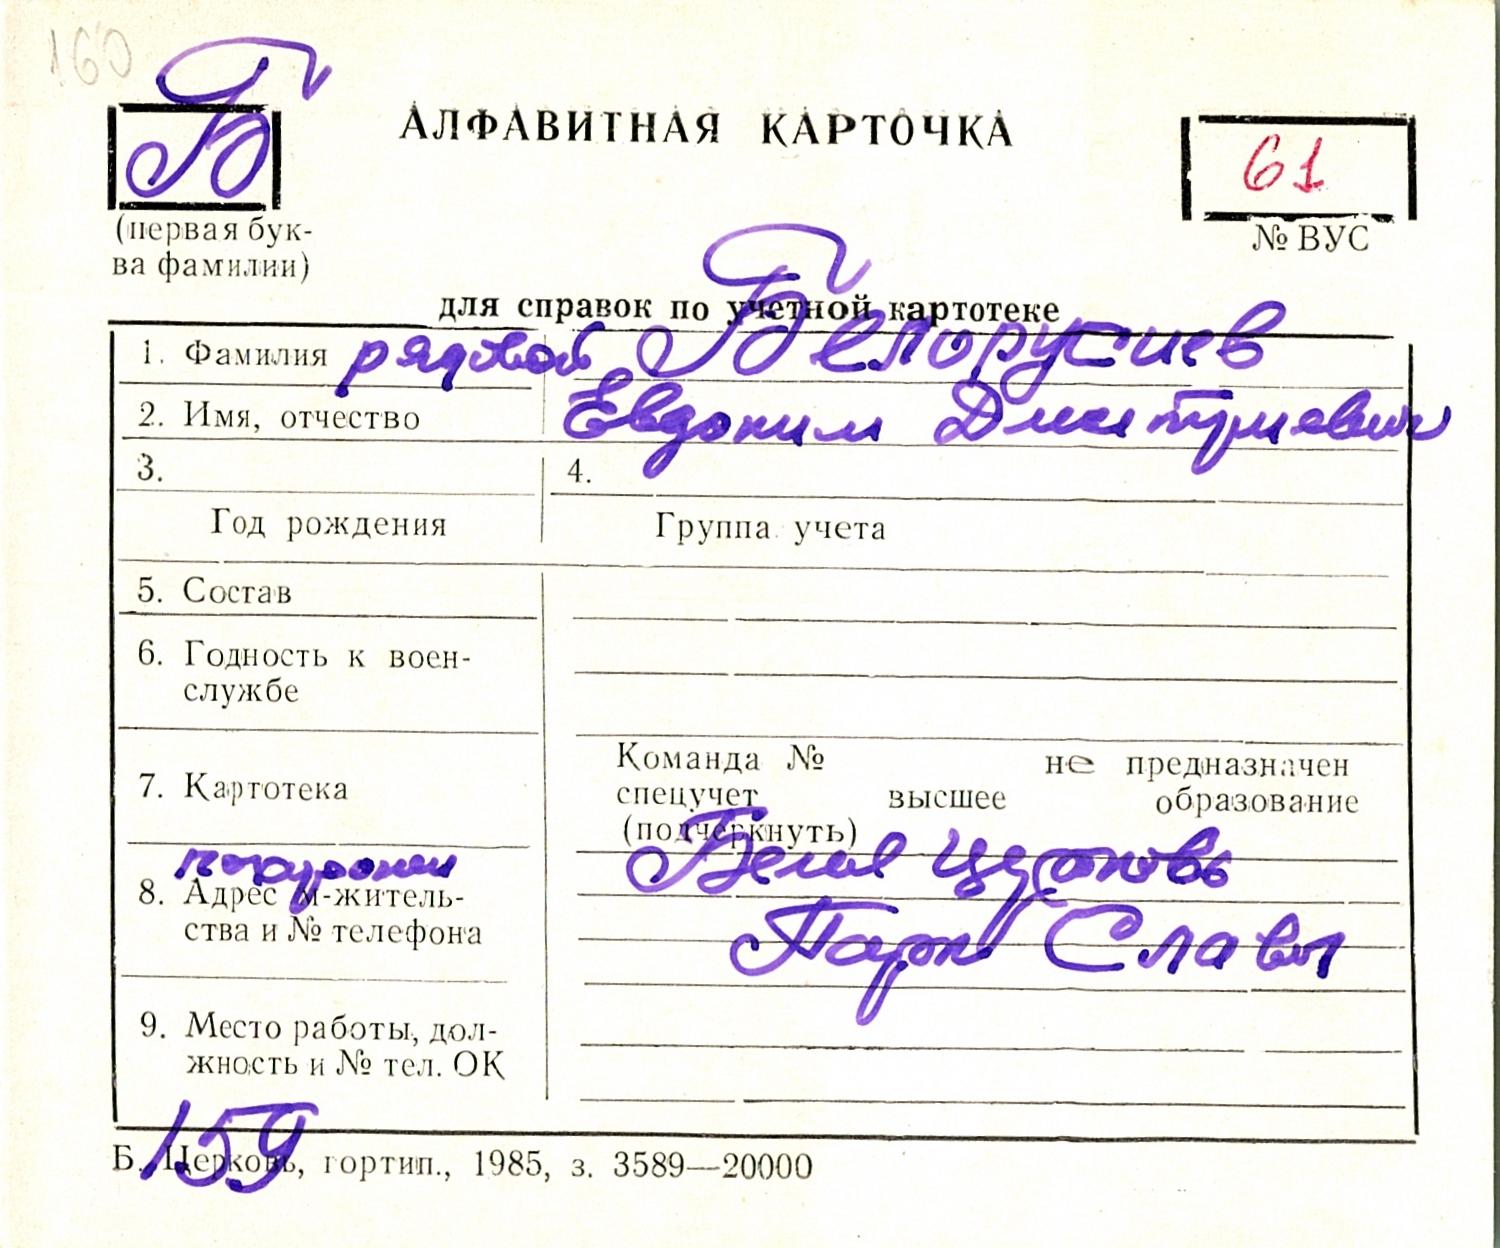 160
Б
АЛФАВИТНАЯ КАРТОЧКА
61
(первая бук-
ва фамилии)
№ ВУС
для справок по учетной картотеке
1. Фамилия рядовой Белорусцев
2. Имя, отчество Евдоким Дмитриевич
3. 4.
Год рождения Группа учета
5. Состав
6. Годность к воен-
службе
Команда № не предназначен
7. Картотека спецучет высшее образование
(подчеркнуть)
похоронен Белая Церковь
8. Адрес м-житель-
ства и № телефона Парк Славы
9. Место работы, дол-
жность и № тел. ОК
159
Б. Церковь, гортип., 1985, з. 3589—20000